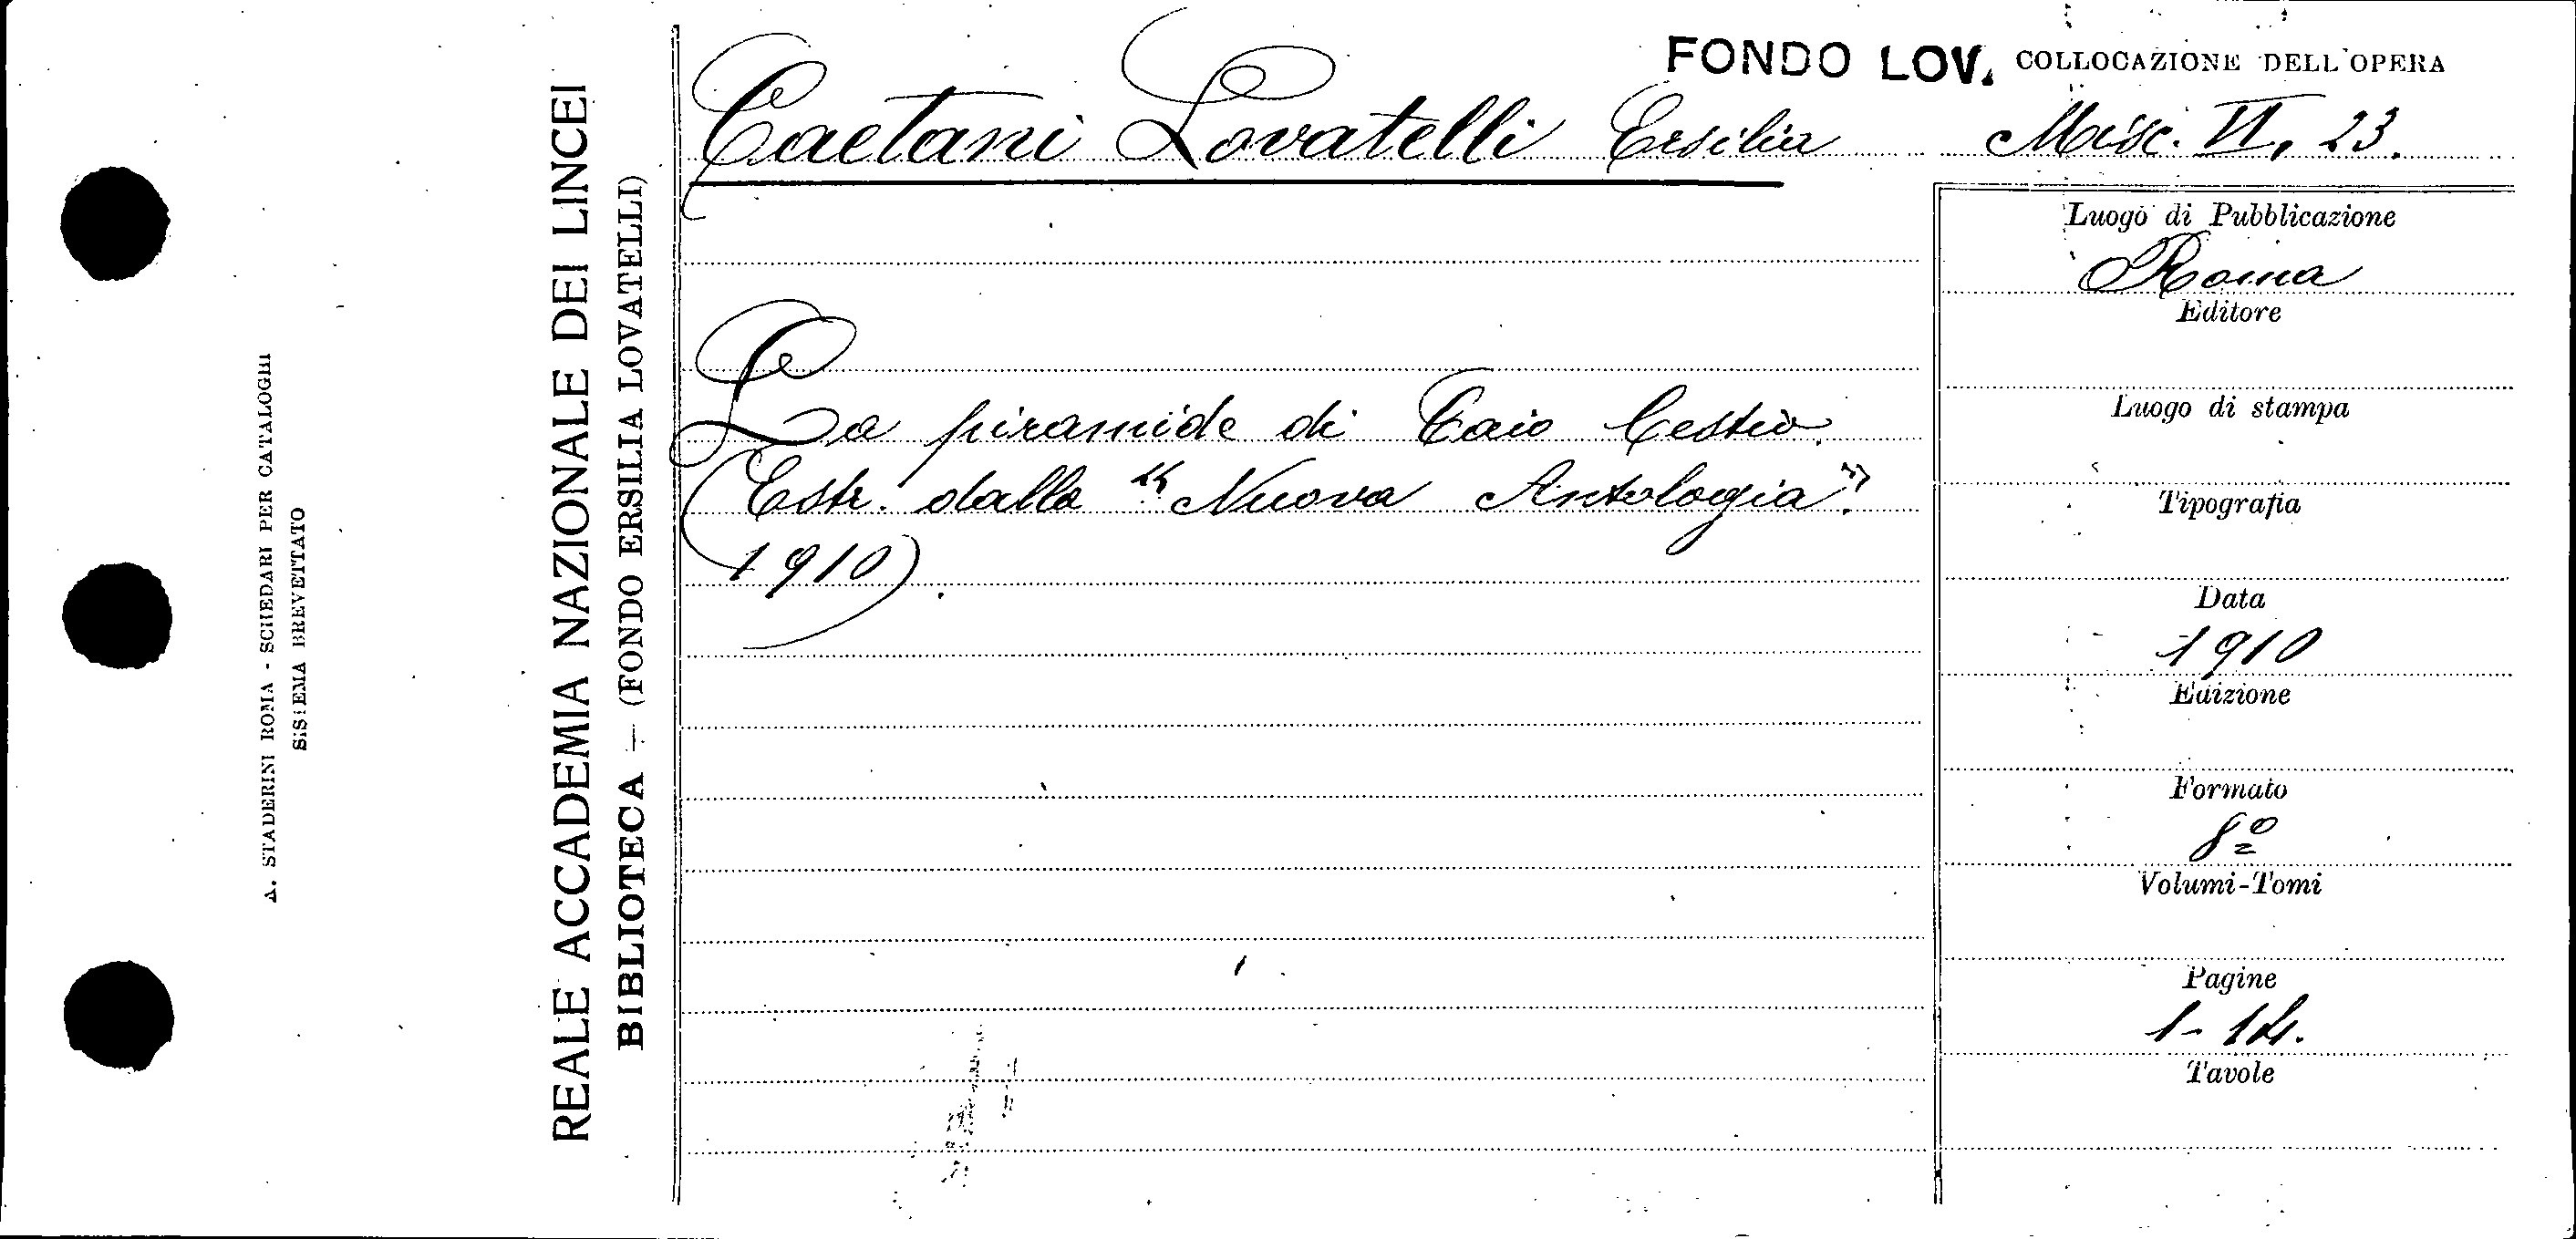 FONDO LOV. COLLOCAZIONE DELL'OPERA
Caetani Lovatelli Ersilia Misc. VI, 23.
La piramide di Caio Cestio.
(Estr. dalla "Nuova Antologia".
1910).
Luogo di Pubblicazione
Roma
Editore
Luogo di stampa
Tipografia
Data
1910
Edizione
Formato
8º
Volumi-Tomi
Pagine
1-14.
Tavole
REALE ACCADEMIA NAZIONALE DEI LINCEI
BIBLIOTECA - (FONDO ERSILIA LOVATELLI)
A. STADERINI ROMA - SCHEDARI PER CATALOGHI
SISTEMA BREVETTATO